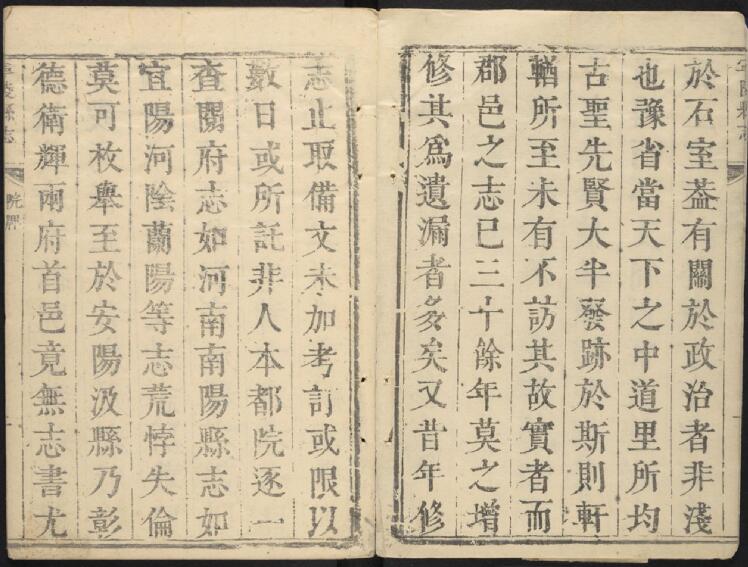 於石室葢有關於政治者非淺
也豫省當天下之中道里所均
古聖先賢大半發跡於斯則軒
輶所至未有不訪其故實者而
郡邑之志已三十餘年莫之增
修其爲遺漏者多矣又昔年修
志止取備文未加考訂或限以
數日或所託非人本都院逐一
查閱府志如河南南陽縣志如
宜陽河陰蘭陽等志荒悖失倫
莫可枚舉至於安陽汲縣乃彰
德衛輝兩府首邑竟無志書尤
寧陵縣志
院牌